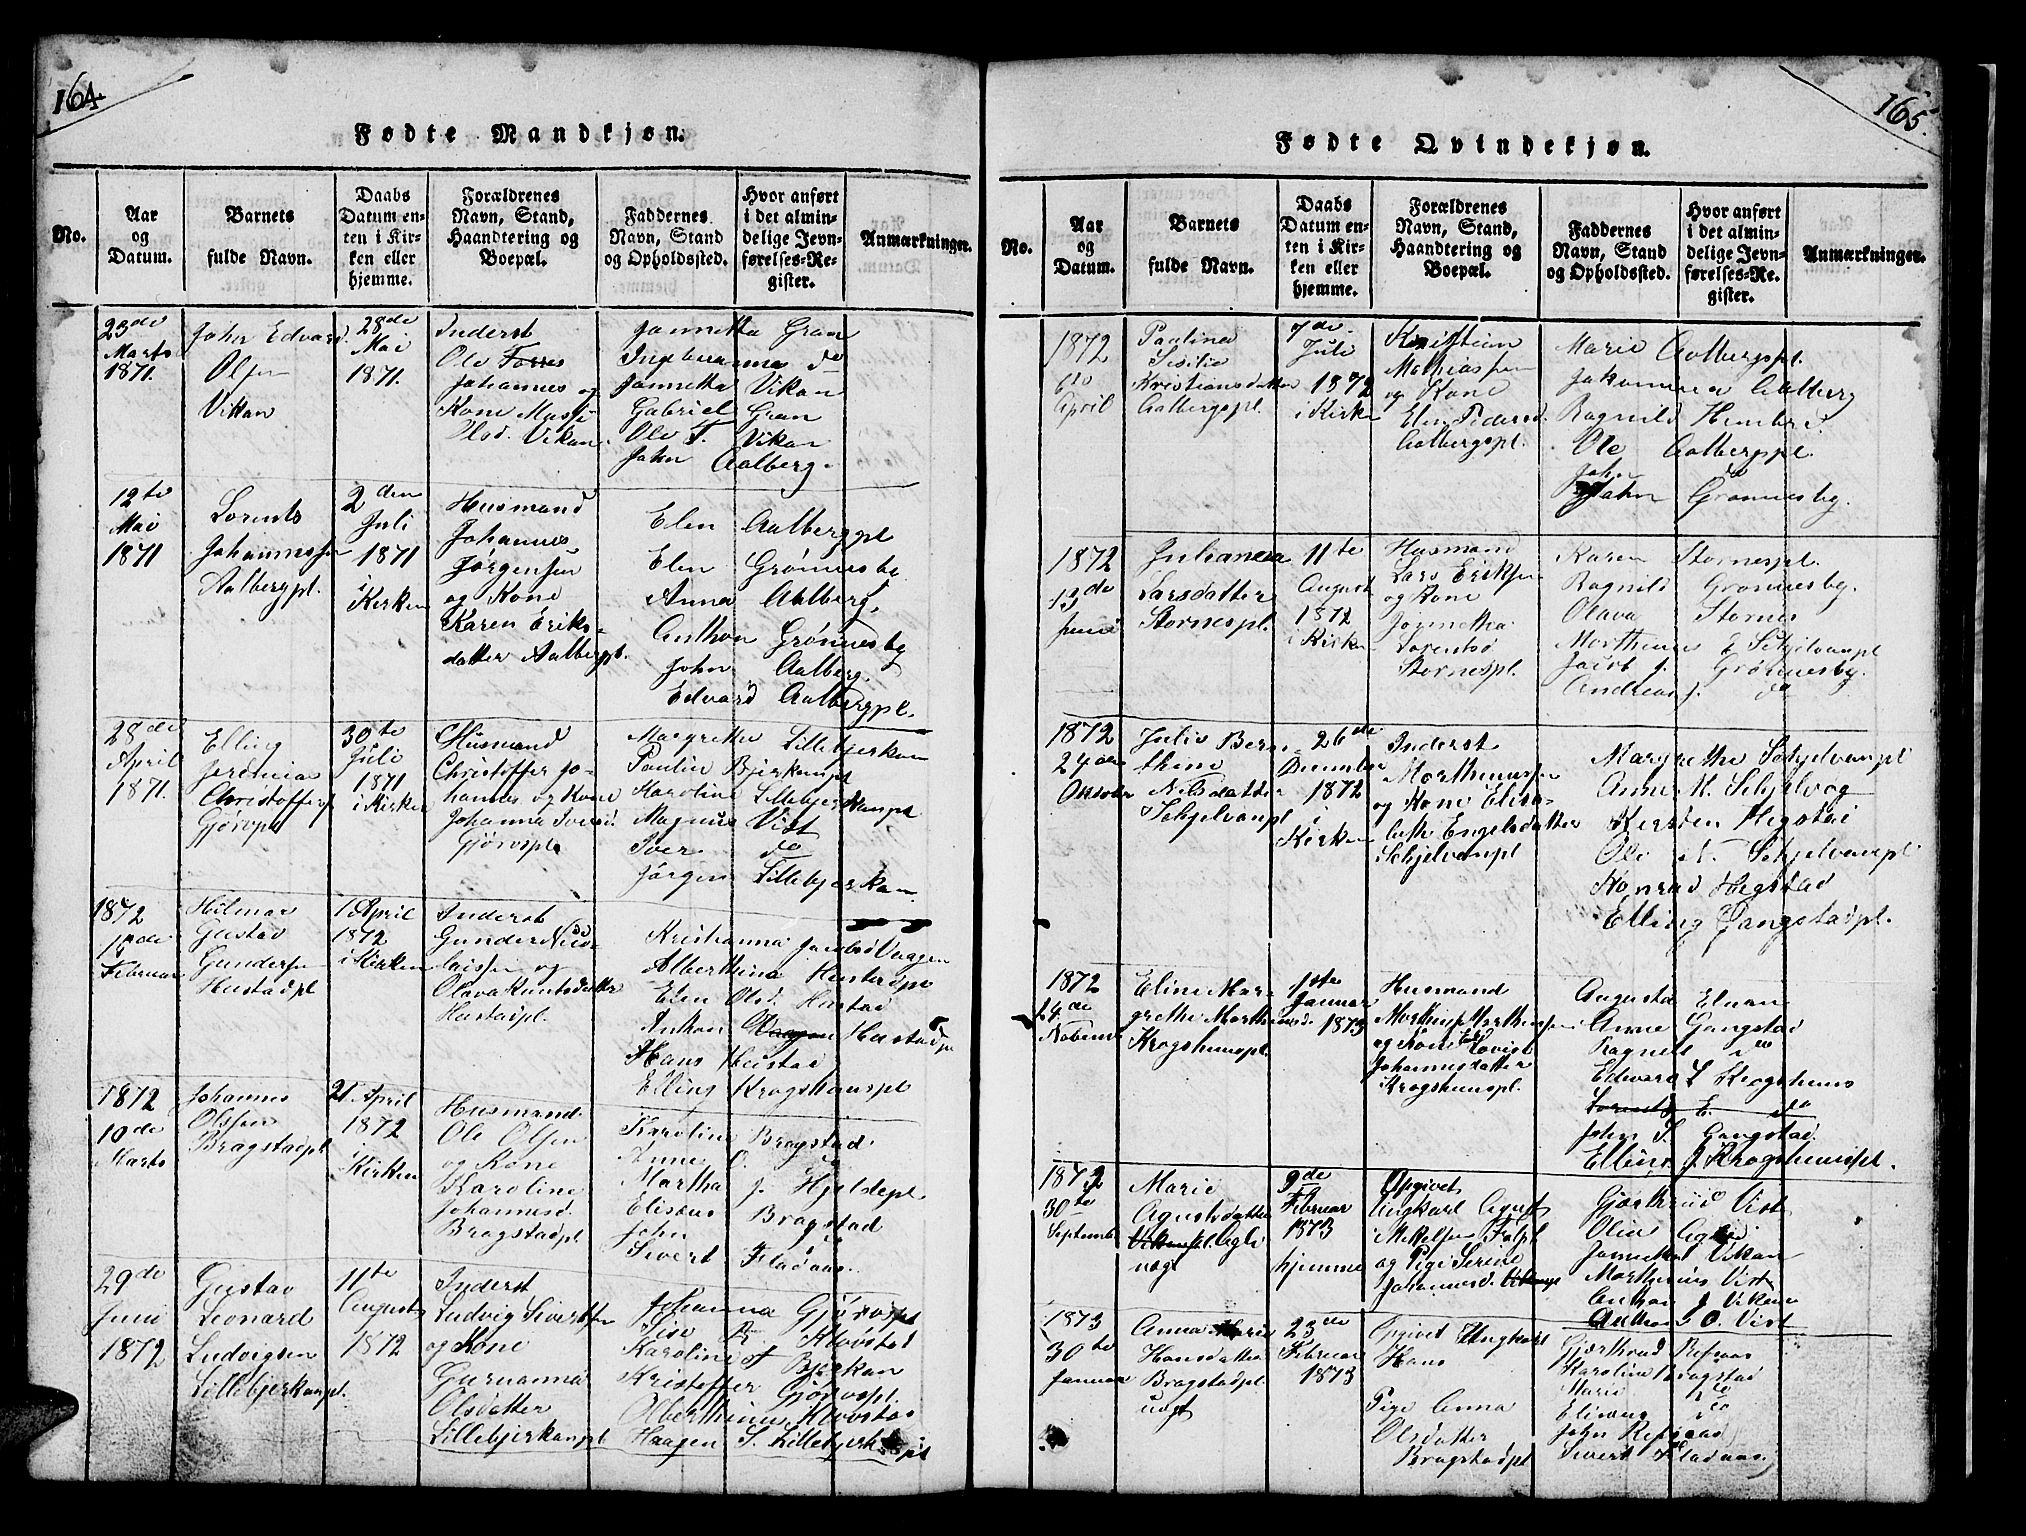 164.
Fødte Mandkjøn.
No.
Aar
og
Datum.
Barnets
fulde Navn.
Daabs
Datum en-
ten i Kir-
ken eller
hjemme.
Forældrenes
Navn, Stand,
Haandtering og
Boepæl.
Faddernes
Navn, Stand
og Opholdssted.
Hvor anført
i det almin-
delige Jevn-
førelses-Re-
gister.
Anmærkninger.
23de
Marts
1871.
John Edvard
Olsen
Vikan
28de
Mai
1871.
Inderst
Ole
Johannes og
Kone
Olsd. Vikan.
Jannetta Gran
do
Jannetta Vikan
Gabriel Gran
Ole T. Vikan
John Aalberg.
12te
Mai
1871
Lorents
Johannessen
Aalbergpl.
2den
Juli
1871
i
Kirken
Husmand
Johannes
Jørgensen
og Kone
Karen Eriks-
datter Aalbergpl.
Elen Aalbergpl
Elen Grønnesby
Anna Aalberg.
Anthon Grønnesby
John Aalberg.
Edvard Aalbergpl.
28de
April
1871.
Elling
Jeremias
Christoffers
Gjørvpl
30te
Juli
1871
i Kirken
Husmand
Christoffer Jo-
hannes og Kone
Johanna Iversd.
Gjørvpl.
Margrethe Lillebjerkan
Paulin Bjerkanpl
Karoline Lillebjerkanpl
Magnus Vist
Iver do
Jørgen Lillebjerkan
1872
Februar
Hilmar
Gustav
Gundersen
Hustadpl
April
1872
i Kirken
Inderst
Gunder Nico-
laisen og
Olava Knutsdatter
Hustadpl.
Kristianna Jacobsd Vaagen
Alberthina Hustadpl
Elen Olsd. Hustad
Anton Hustadpl
Hans Hustad
Elling Kragshaugpl
1872
10de
Marts
Johannes
Olsen
Bragstadpl
21 April
1872
Kirken
Husmand
Ole Olsen
og Kone
Karoline
Johannesd.
Bragstadpl
Karoline Bragstad
Anne O. do
Martha J. Hjeldepl
Elisæus Bragstad
John do
Sivert Fladaas.
29de
Juni
1872
Gustav
Leonard
Ludvigsen
Lillebjerkanpl.
11te
August
1872
Inderst
Ludvig Sivertsen
og Kone
Gurianna
Olsdatter
Lillebjerkanpl
Johanna Gjørvpl
Klovstad
Karoline Bjerkan
Kristoffer Gjørvspl.
Klovstad
Haagen S. Lillebjerkanpl
165.
Fødte Qvindekjøn.
No.
Aar
og
Datum.
Barnets
fulde Navn.
Daabs
Datum en-
ten i Kir-
ken eller
hjemme.
Forældrenes
Navn, Stand,
Haandtering og
Boepæl.
Faddernes
Navn, Stand
og Opholdssted.
Hvor anført
i det almin-
delige Jevn-
førelses-Re-
gister.
Anmærkninger.
1872
6te
April
Paulina
Sisilia
Kristiansdatter
Aalbergspl.
7de
Juli
1872
i Kirken
Kristian
Mathiassen
og Kone
Elen Pedersd.
Aalbergspl.
Marie Aalbergspl.
Johannna Aalberg
Ragnild Hembre.
Ole Aalbergpl.
John do
John Grønnesby.
1872
13de
Juni
Julianna
Larsdatter
Stornespl.
11te
August
1872
i Kirken
Husmand
Lars Eriksen
og Kone
Jonnetha
Lorentsd
Stornespl.
Karen Stornespl.
Ragnild Grønnesby.
Olava Stornes
Morthenus E. Schjelvanpl
Jacob J. Grønnesby.
Andreas J. do
1872
24de
Oktober
Julie Bern-
thine
Nilsdatter
Schjelvanpl
26de
December
1872
i
Kirken
Inderst
Morthenussen
og Kone Elisa-
beth Engelsdatter
Schjelvanpl
Margrethe Schjelvanpl
Anne M. Schjelvog
Kirsten Hegstad
Ole Schjelvanpl
Konrad Hegstad
Elling Gangstadpl.
1872
14de
November
Eline Mar-
grethe Morthensd.
Kragshaugpl.
1ste
Januar
1873
Husmand
Morthen Morthensen
og Kone Lovise
Johannesdatter
Kragshaugpl.
Augusta
Anne Gangstad
Ragnels do
Edward L Kragshaug
Lorents E. do
John T. Gangstad.
Elling J. Kragshaugpl.
1873
30te
September
Marie
Agustsdatter
uægt
9de
Februar
1873
hjemme
Opgivet
Ungkarl Agust
Mikelsen
og Pige Serine
Johannesd.
Vist
Vikan
Morthenus Vist
Anthon J Vikan
Anthon O. Vist
1873
30te
Januar
Anna Marie
Hansdatter
Bragstadpl.
uægt
23de
Februar
1873
Opgivet Ungkarl
Hans
Pige Anna
Olsdatter
Bragstadpl
Gjørthrud Refsaas
Karoline Bragstad
Marie do
Elisæus do
John Refsaas
Sivert Fladaas